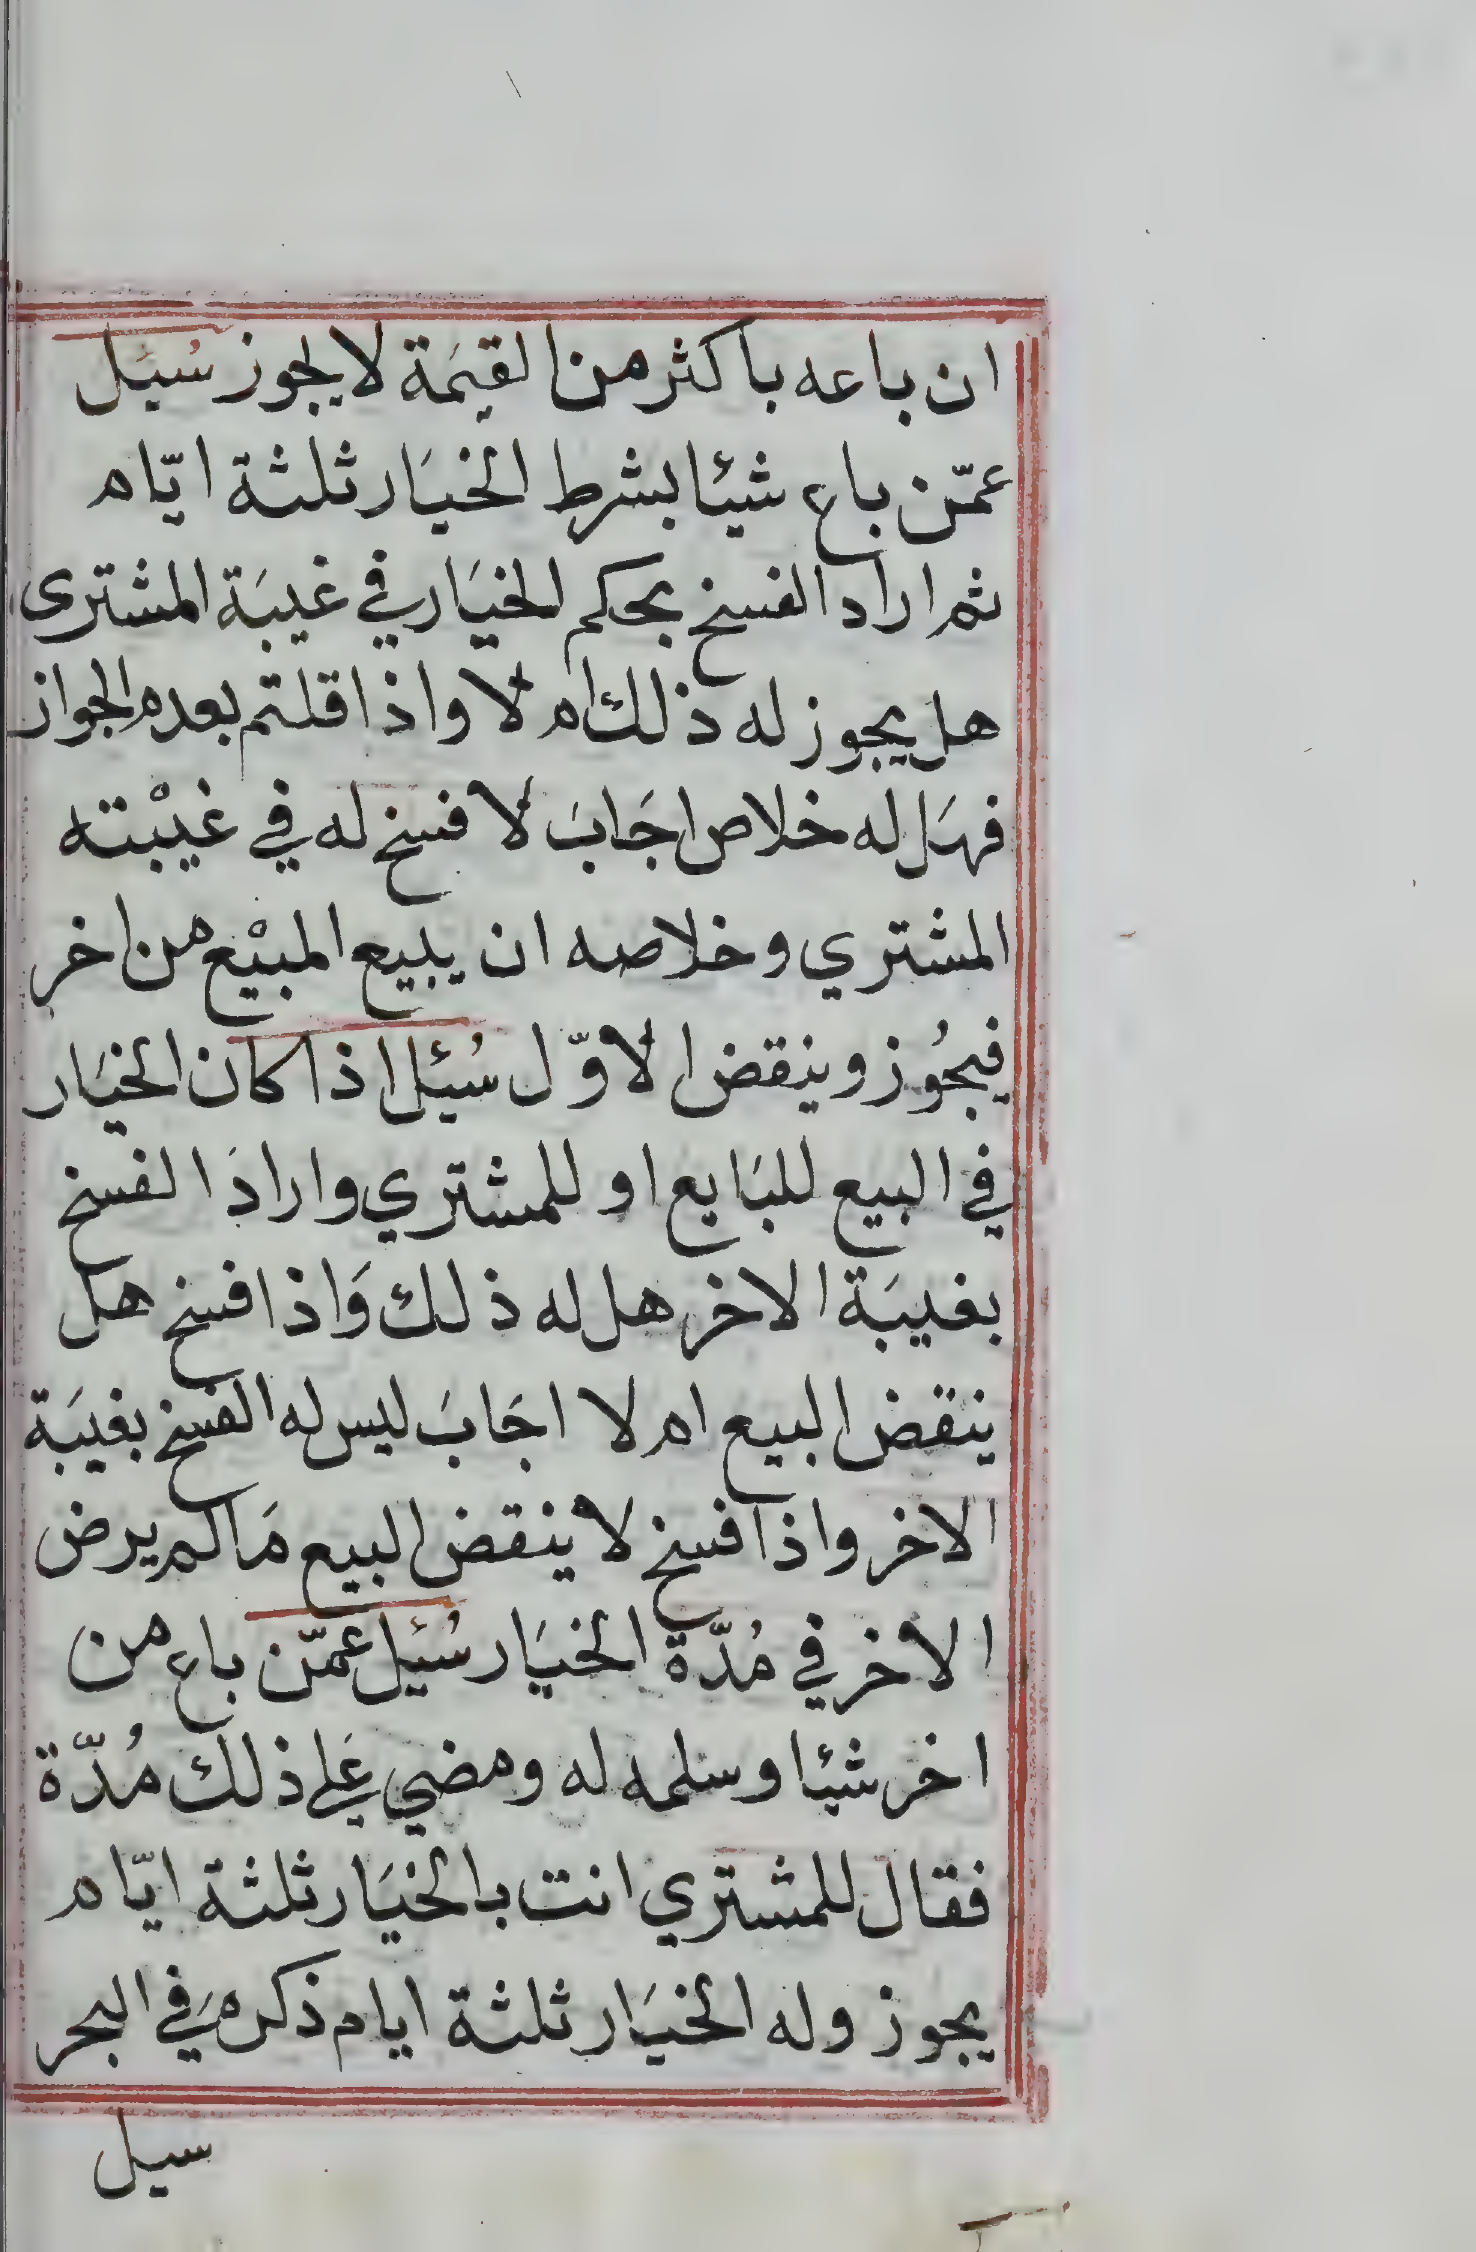 ان باعه باكثر من القيَمة لا يجوز سُئيل
عمّن باع شيئا بشرط الخيَار ثلثة ايّام
ثم اراد الفسخ بحكم الخيَار في غيبَة المشترى
هل يجوز له ذلك ام لا واذا قلتم بعدم الجواز
فهَل له خلاص اجَابَ لا فسخ له في غيْبته
المشتري وخلاصه ان يبيع المبيْع من اخر
فيجُوز وينقض الاوّل سُئيل اذا كان الخيَار
في البيع للبَايع او للمشتري وارادَ الفسخ
بغيبَة الاخر هل له ذلك وَاذا فسخ هل
ينقض البيع ام لا اجَابَ ليس له الفسخ بغيبَة
الاخر واذا فسخ لا ينقض البيع مَا لم يرض
الاخر في مُدّة الخيَار سُئيل عمّن باع من
اخر شيئا وسلمه له ومضي عَلي ذلك مُدّة
فقال للمشتري انت بالخيَار ثلثة ايّام
يجوز وله الخيَار ثلثة ايام ذكرهَ في البحر
سيل